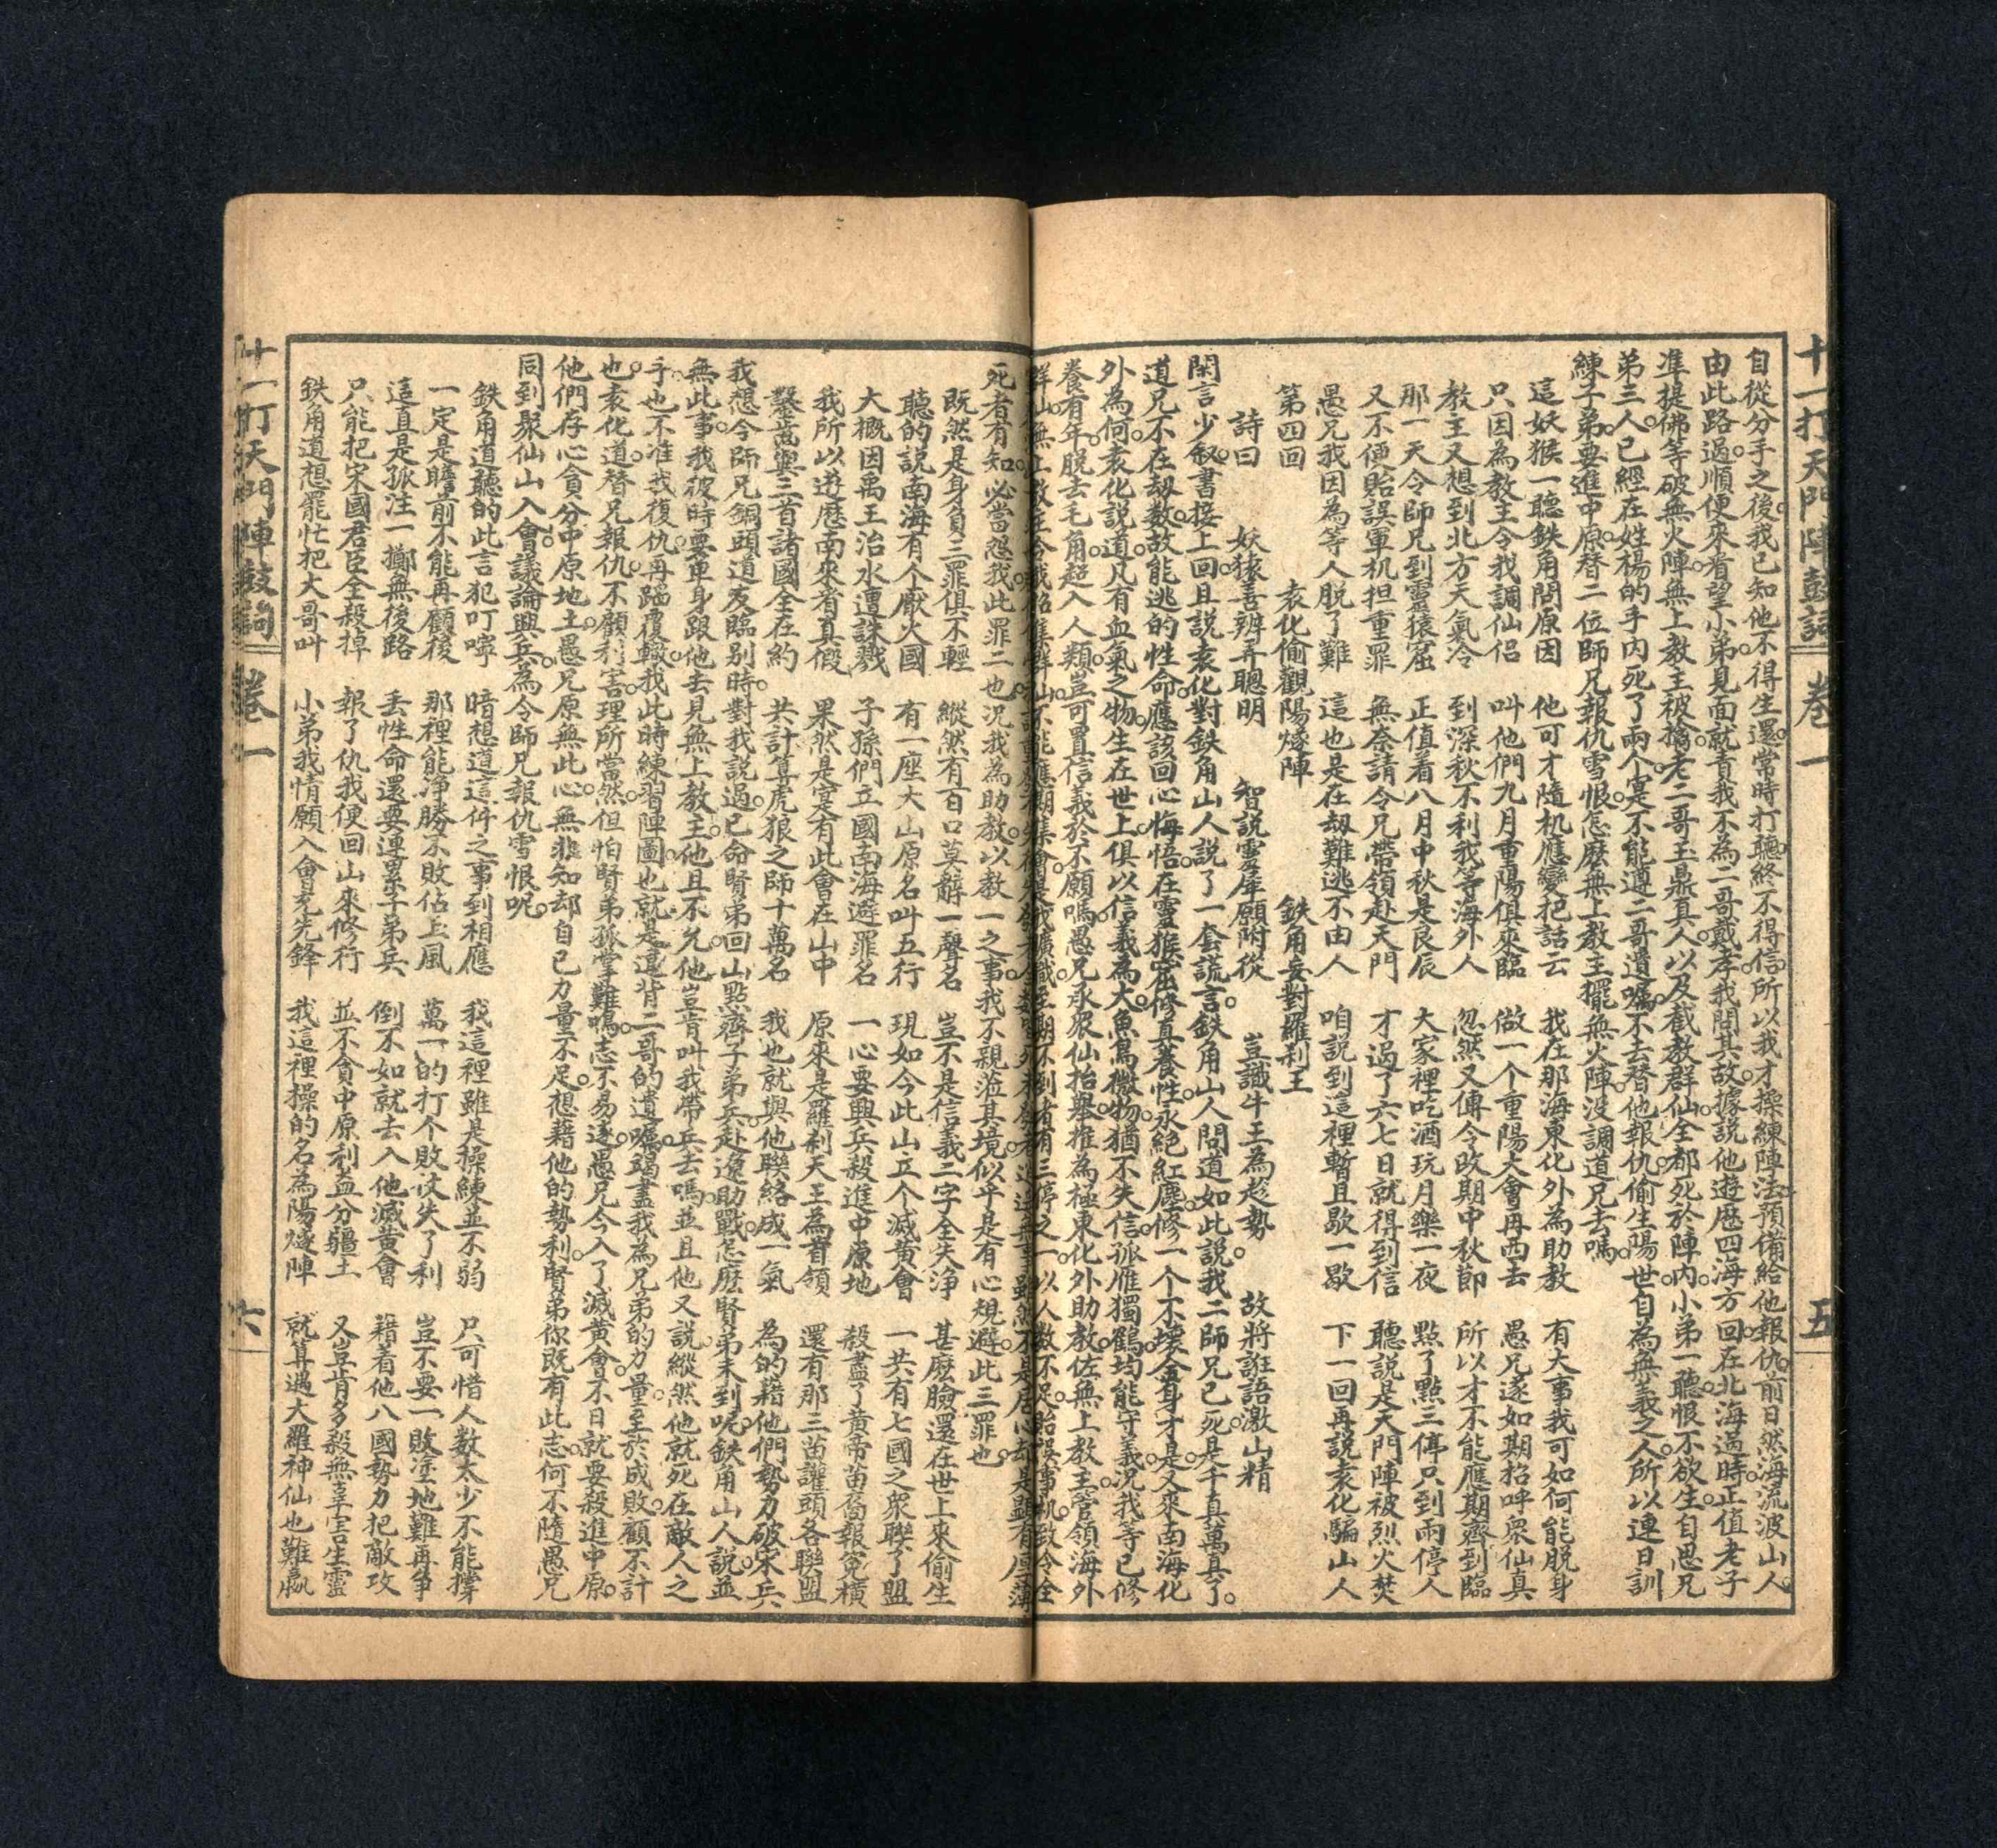 十一打天門陣鼓詞 卷一 五
自從分手之後我已知他不得生還常時打聽終不得信所以我才操練陣法預備給他報仇前日然海流波山人
由此路過順便來看望小弟見面就責我不為二哥戴孝我問其故據說他遊歷四海方回在北海過時正值老子
準提佛等破無火陣無上教主被擒老二哥玉鼎真人以及截教群仙全都死於陣內小弟一聽恨不欲生自思兄
弟三人已經在姓楊的手內死了兩个寔不能遵二哥遺囑不去替他報仇偷生陽世自為無義之人所以連日訓
練子弟要進中原替二位師兄報仇雪恨怎麽無上教主擺無火陣没調道兄去嗎
這妖猴一聽鉄角問原因 他可才隨机應變把話云 我在那海東化外為助教 有大事我可如何能脱身
只因為教主令我調仙侣 叫他們九月重陽俱來臨 做一个重陽大會再西去 愚兄遂如期招呼衆仙真
教主又想到北方天氣冷 到深秋不利我等海外人 忽然又傳令改期中秋節 所以才不能應期齊到臨
那一天令師兄到靈猿窟 正值着八月中秋是良辰 大家裡吃酒玩月樂一夜 點了點三停只到兩停人
又不便貽誤軍机担重罪 無奈請令兄帶領赴天門 才過了六七日就得到信 聽説是天門陣被烈火焚
愚兄我因為等人脱了難 這也是在劫難逃不由人 咱説到這裡暫且歇一歇 下一回再説袁化騙山人
第四回 袁化偷觀陽燧陣 鉄角妄對羅刹王
詩曰 妖猿善辨弄聰明 智説靈犀願附從 豈識牛王為趁勢 故將誑語激山精
閑言少叙書接上回且説袁化對鉄角山人説了一套謊言鉄角山人問道如此説我二師兄已死是千真萬真了
道兄不在劫数故能逃的性命應該回心悔悟在靈猴窟修真養性永絶紅塵修一个不壞金身才是又來南海化
外為何袁化説道凡有血氣之物生在世上俱以信義為大魚鳥微物猶不失信孤雁獨鶴均能守義況我等已修
養有年脱去毛角超入人類豈可置信義於不願嗎愚兄承衆仙抬舉推為極東化外助教佐無上教主管領海外
死者有知必當怨我此罪二也況我為助教以教一之事我不親涖其境似乎是有心規避此三罪也
既然是身負三罪俱不輕 縱然有百口莫辭一聲名 豈不是信義二字全失净 甚麽臉還在世上來偷生
聽的説南海有个厭火國 有一座大山原名叫五行 現如今此山立个滅黄會 一共有七國之衆聯了盟
大概因禹王治水遭誅戮 子孫們立國南海避罪名 一心要興兵殺進中原地 殺盡了黄帝苗裔報寃横
我所以遊歷南來看真假 果然是寔有此會在山中 原來是羅刹天王為首領 還有那三苗讙頭各聯盟
鑿齒與三首諸國全在約 共計算虎狼之師十萬名 我也就與他聯絡成一氣 為的藉他們勢力破宋兵
我想今師兄銅頭道友臨别時對我説過已命賢弟回山點齊子弟兵赴邉助戰怎麽賢弟未到呢鉄角山人説並
無此事我彼時要單身跟他去見無上教主他且不允他豈肯叫我帶兵去嗎並且他又説縱然他就死在敵人之
手也不准我復仇再蹈覆轍我此時練習陣圖也就是違背二哥的遺囑竭盡我為兄弟的力量至於成敗顧不計
也袁化道替兄報仇不願利害理所當然但怕賢弟孤掌難鳴志不易遂愚兄今入了滅黄會不日就要殺進中原
他們存心貪分中原地土愚兄原無此心無非知却自己力量不足想藉他的勢利賢弟你既有此志何不隨愚兄
同到聚仙山入會議論興兵為令師兄報仇雪恨呢
鉄角道聽的此言犯叮嚀 暗想道這件之事到相應 我這裡雖是操練並不弱 只可惜人数太少不能撑
一定是瞻前不能再顧後 那裡能净勝不敗佔上風 萬一的打个敗仗失了利 豈不要一敗塗地難再爭
這真是孤注一擲無後路 丢性命還要連累子弟兵 倒不如就去入他滅黄會 藉着他八國勢力把敵攻
只能把宋國君臣全殺掉 報了仇我便回山來修行 並不貪中原利益分疆土 又豈肯多殺無辜害生靈
鉄角道想罷忙把大哥叫 小弟我情願入會充先鋒 我這裡操的名為陽燧陣 就算遇大羅神仙也難贏
十一打天門陣鼓詞 卷一 六